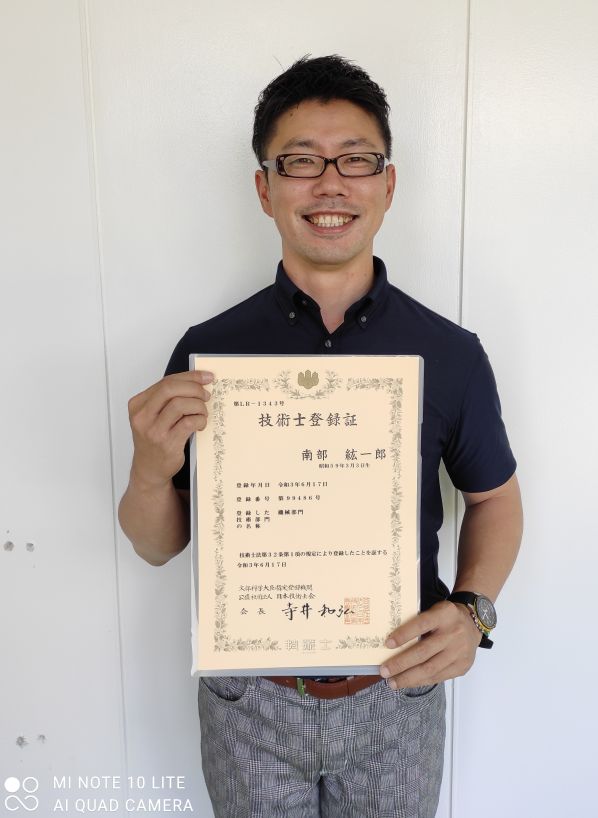 第LR－1343号
技術士登録証
南部 紘一郎
昭和59年3月3日生
登録年月日 令和3年6月17日
登録番号 第99486号
登録した 機械部門
技術部門
の名称
技術士法第32条第1項の規定により登録したことを証する
令和3年6月17日
文部科学大臣指定登録機関
公益社団法人 日本技術士会
会長 寺井和弘
技術士
MI NOTE 10 LITE
AI QUAD CAMERA